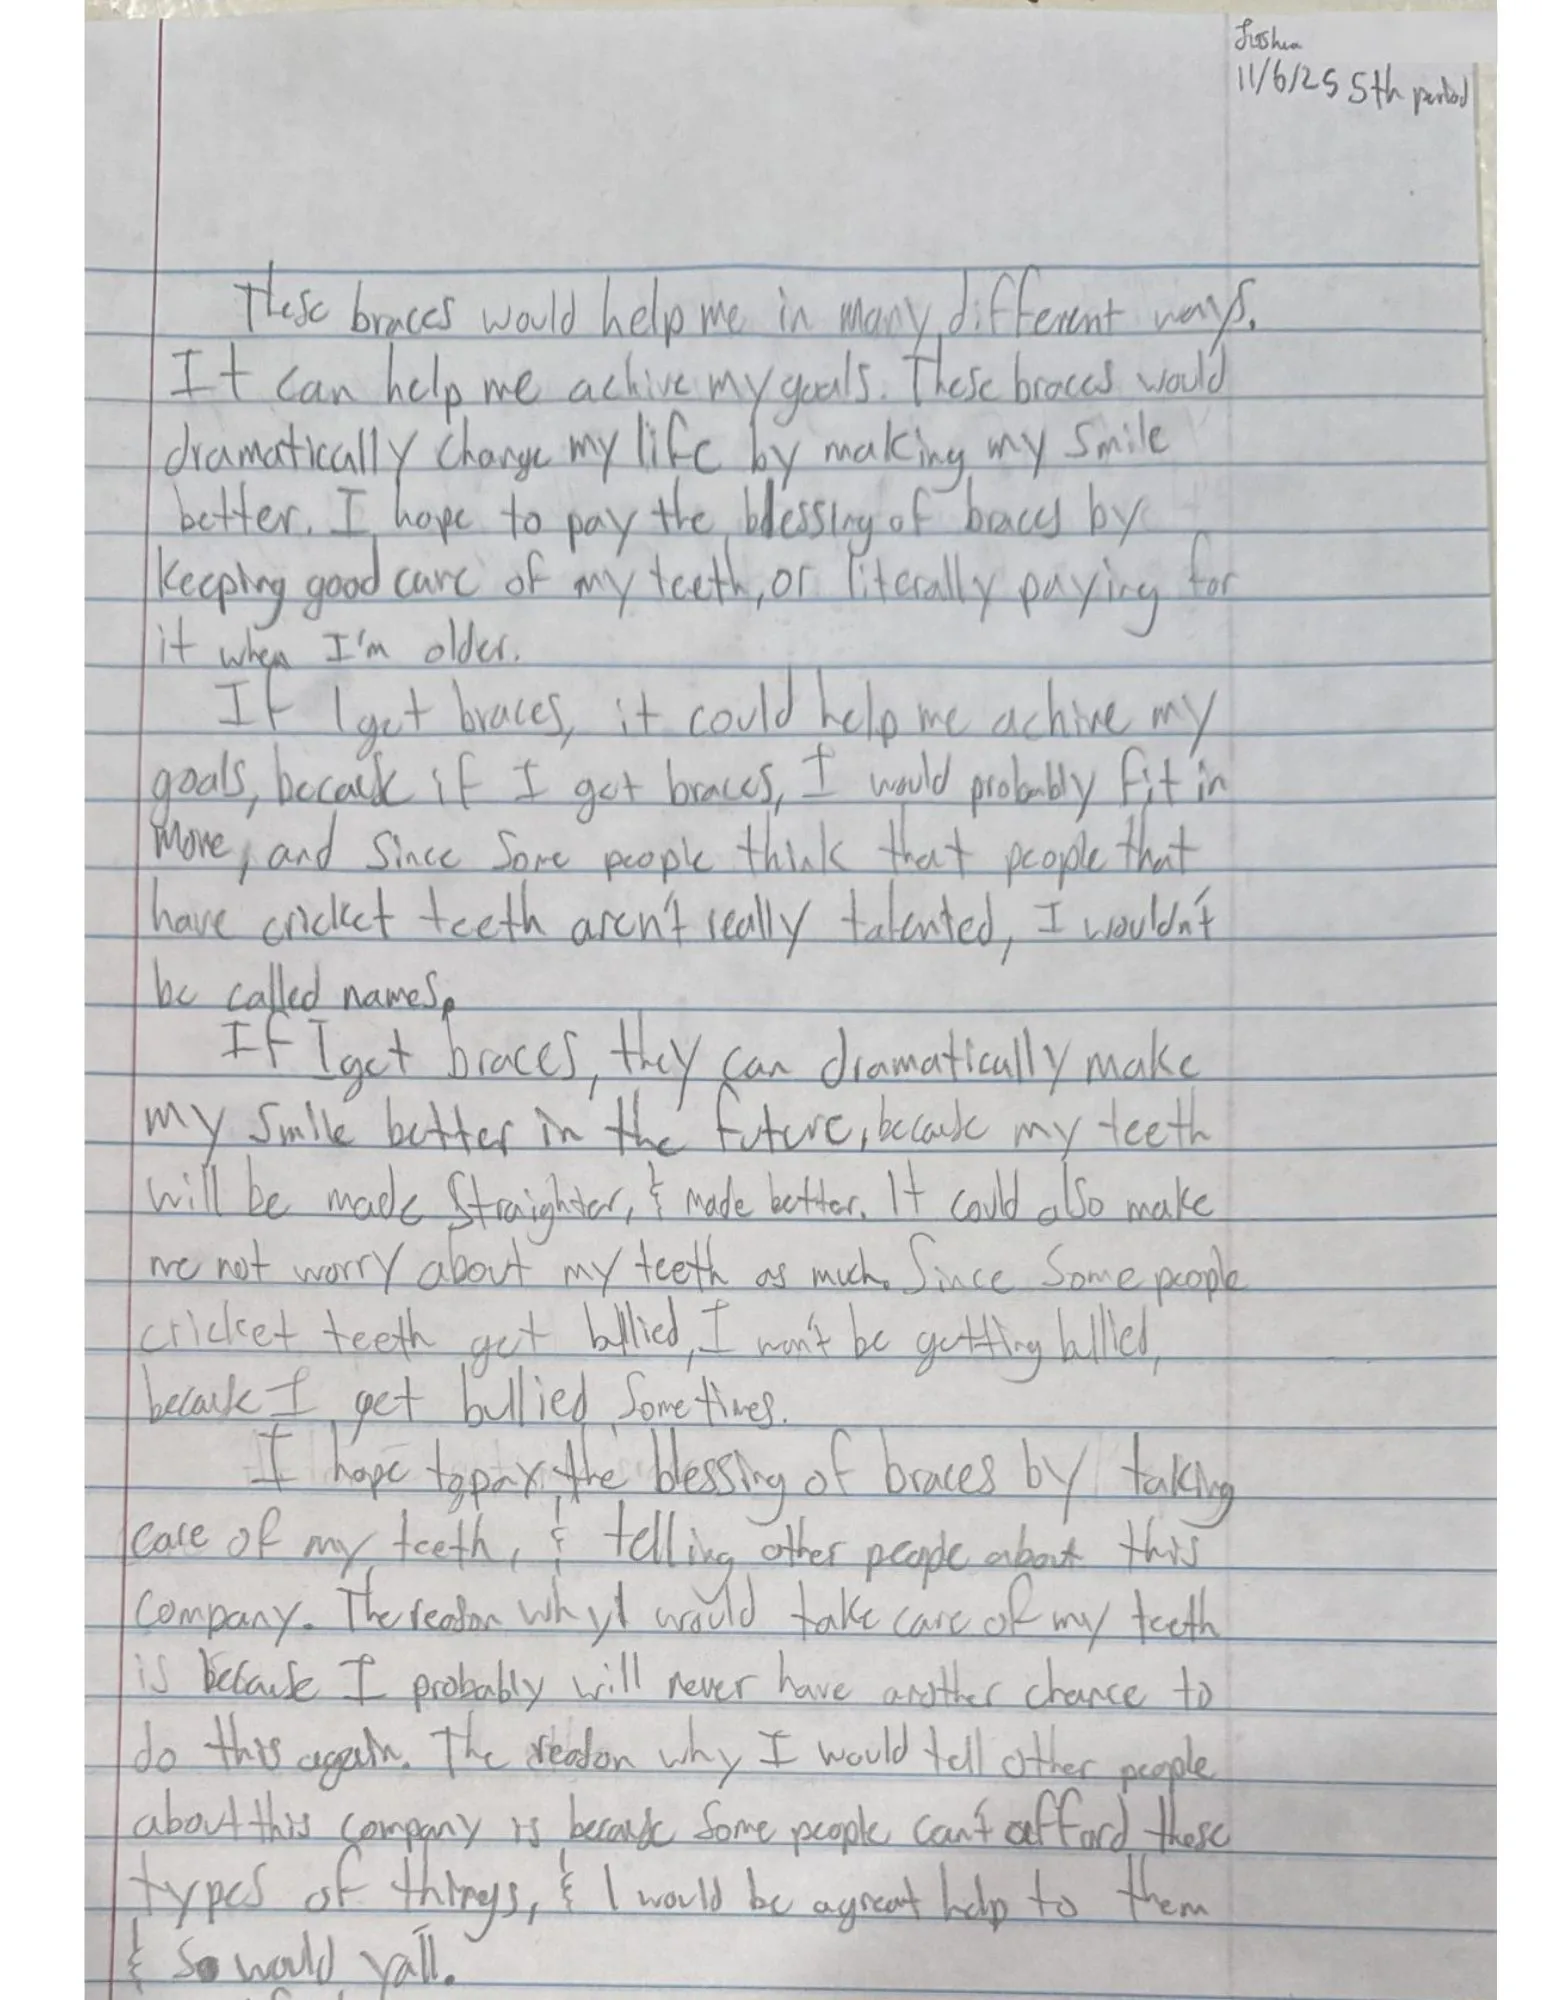 Joshua
11/6/25 5th period
These braces would help me in many different ways.
It can help me achive my goals. These braces would
dramatically change my life by making my smile
better. I hope to pay the blessing of braces by
keeping good care of my teeth, or literally paying for
it when I'm older.
If I get braces, it could help me achive my
goals, because if I get braces, I would probably fit in
more, and since some people think that people that
have cricket teeth aren't really talented, I wouldn't
be called names.
If I get braces, they can dramatically make
my smile better in the future, because my teeth
will be made straighter, & made better. It could also make
me not worry about my teeth as much. Since some people
cricket teeth get bullied, I won't be getting bullied,
because I get bullied sometimes.
I hope to pay the blessing of braces by taking
care of my teeth, & telling other people about this
company. The reason why I would take care of my teeth
is because I probably will never have another chance to
do this again. The reason why I would tell other people
about this company is because some people can't afford these
types of things, & I would be a great help to them
& so would yall.